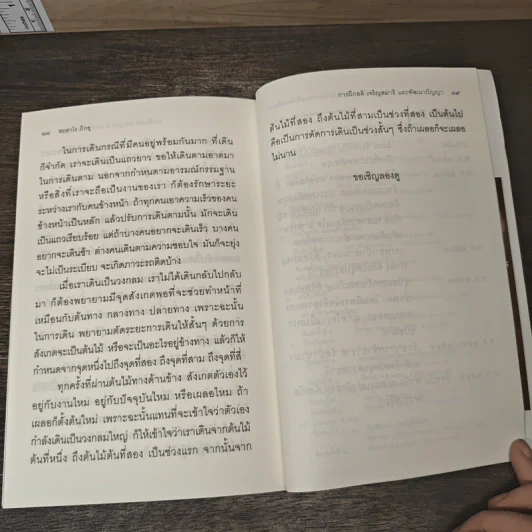 ๔๘ ชยสาโร ภิกขุ
ในการเดินกรณีที่มีคนอยู่พร้อมกันมาก ที่เดิน
ก็จำกัด เราจะเดินเป็นแถวยาว ขอให้เดินตามอาตมา
ในการเดินตาม นอกจากกำหนดตามอารมณ์กรรมฐาน
หรือสิ่งที่เราจะถือเป็นงานของเรา ก็ต้องรักษาระยะ
ระหว่างเรากับคนข้างหน้า ถ้าทุกคนเอาความเร็วของคน
ข้างหน้าเป็นหลัก แล้วปรับการเดินตามนั้น มักจะเดิน
เป็นแถวเรียบร้อย แต่ถ้าบางคนอยากจะเดินเร็ว บางคน
อยากจะเดินช้า ต่างคนเดินตามความชอบใจ มันก็จะยุ่ง
จะไม่เป็นระเบียบ จะเกิดภาวะรถติดบ้าง
เมื่อเราเดินเป็นวงกลม เราไม่ได้เดินกลับไปกลับ
มา ก็ต้องพยายามมีจุดสังเกตพอที่จะช่วยทำหน้าที่
เหมือนกับต้นทาง กลางทาง ปลายทาง เพราะฉะนั้น
ในการเดิน พยายามตัดระยะการเดินให้สั้นๆ ด้วยการ
สังเกตจะเป็นต้นไม้ หรือจะเป็นอะไรอยู่ข้างทาง แล้วก็ให้
กำหนดจากจุดหนึ่งไปถึงจุดที่สอง ถึงจุดที่สาม ถึงจุดที่สี่
ทุกครั้งที่ผ่านต้นไม้ทางด้านข้าง สังเกตตัวเองไว้
อยู่กับงานไหม อยู่กับปัจจุบันไหม หรือเผลอไหม ถ้า
เผลอก็ตั้งต้นใหม่ เพราะฉะนั้นแทนที่จะเข้าใจว่าตัวเอง
กำลังเดินเป็นวงกลมใหญ่ ก็ให้เข้าใจว่าเราเดินจากต้นไม้
ต้นที่หนึ่ง ถึงต้นไม้ต้นที่สอง เป็นช่วงแรก จากนั้นจาก
การฝึกสติ เจริญสมาธิ และพัฒนาปัญญา ๔๙
ต้นไม้ที่สอง ถึงต้นไม้ที่สามเป็นช่วงที่สอง เป็นต้นไป
คือเป็นการตัดการเดินเป็นช่วงสั้นๆ ซึ่งถ้าเผลอก็จะเผลอ
ไม่นาน
ขอเชิญลองดู